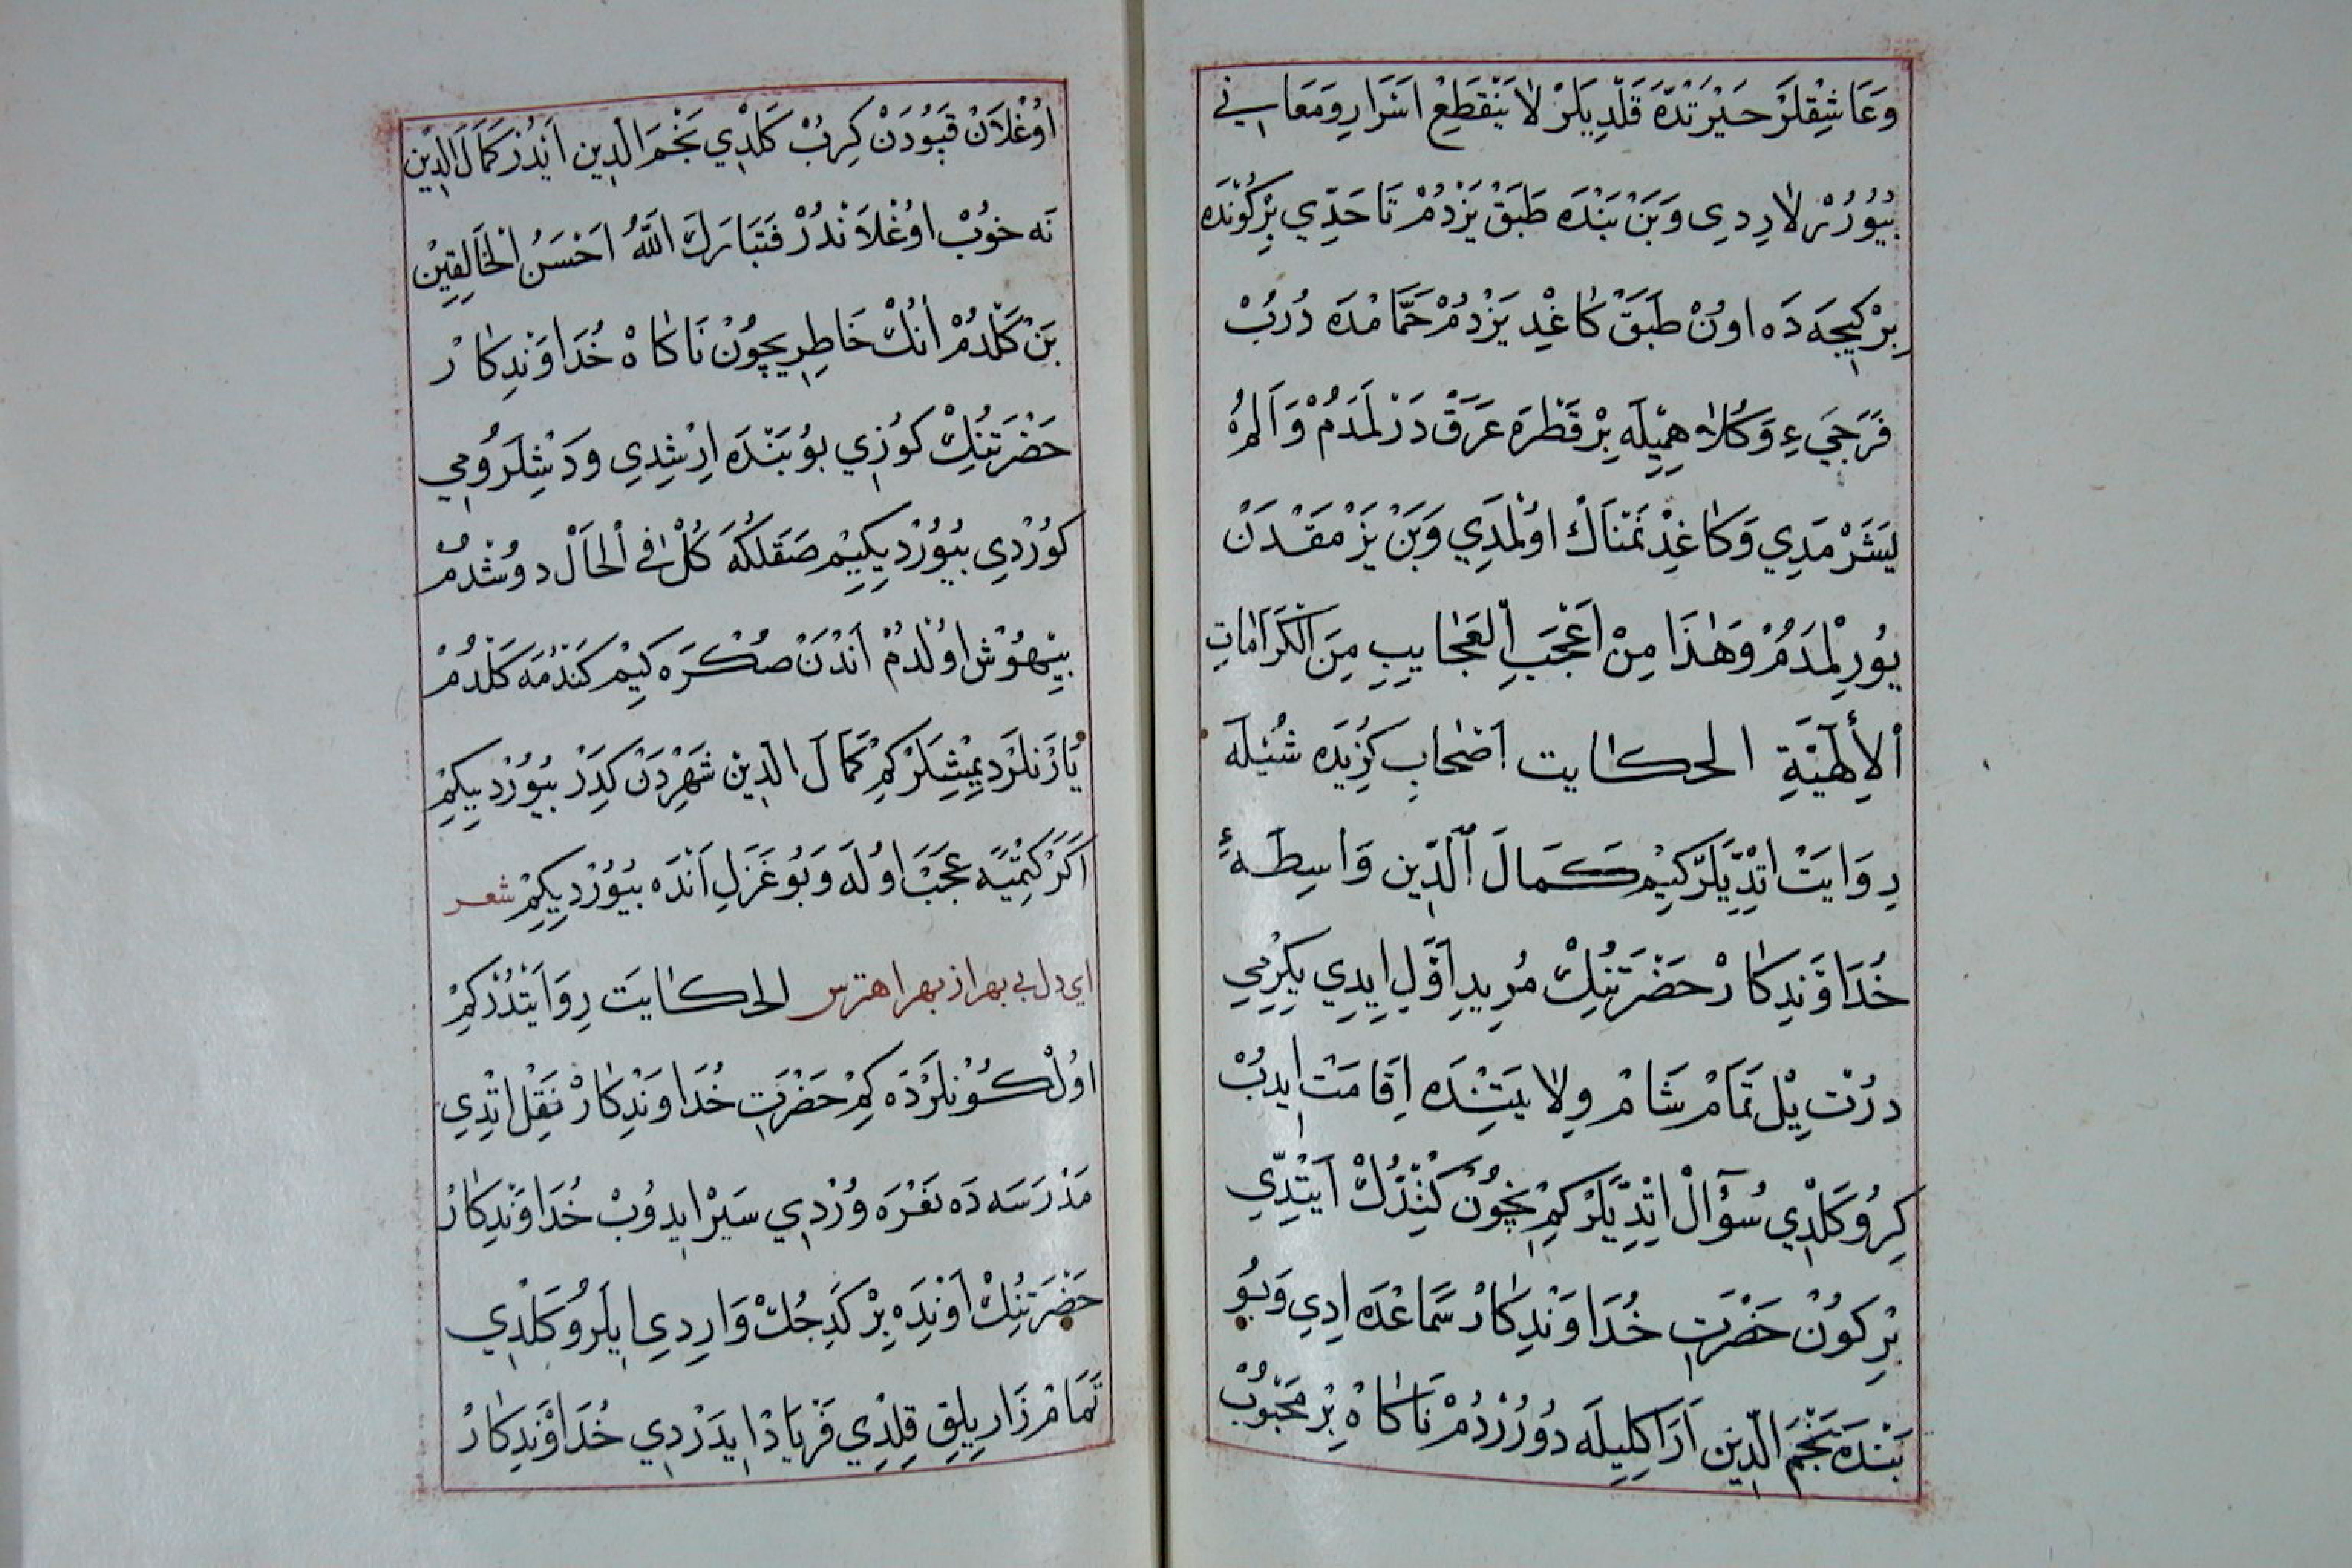 وَعَاشِقْلَرْ حَيْرَتْدَه قَلْدِيلَرْ لَا يَنْقَطِعْ اَسْرَارِ وَمَعَانِي
بُيُورُرْلَارِدِى وَبَنْ بَنْدَه طَبَقْ يَزْدُمْ تَا حَدِّي بِرْ كُونْدَه
بِرْ كِيجَه دَه اونْ طَبَقْ كَاغِدْ يَزْدُمْ حَمَّامْدَه دُرُبْ
فَرَجَيءِ وَكُلَاهِمِيلَه بِرْ قَطْرَه عَرَقْ دَرْلَمَدُمْ وَاَلُمْ
لِيَشَرْمَدِي وَكَاغِدْ نَمْنَاكْ اوُلْمَدِي وَبَنْ يَزْمَقْدَنْ
يُورِلْمَدُمْ وَهٰذَا مِنْ اَعْجَبِ الْعَجَايِبِ مِنَ الْكَرَامَاتِ
الْأِلٰهِيَّةِ الحكايت اَصْحَابِ كُزِيدَه شُيْلَه
رِوَايَتْ اتْدِيلَرْ كِيمْ كَمَالَ الدِّين وَاسِطَهءِ
خُدَاوَنْدِكَارْ حَضْرَتِنُكْ مُرِيدِ اَوَّلِ ايدِي يِكِرْمِي
دُرْت يِلْ تَمَامْ شَامْ وِلَايَتِنْدَه اِقَامَتْ ايدُبْ
كِرُو كَلْدِي سُؤَالْ اتْدِيلَرْ كِمْ نِچُونْ كَنْدُكْ اَيْتِدِي
بِرْ كُونْ حَضْرَتِ خُدَاوَنْدِكَارْ سَمَاعْدَه ادِي وَبُو
بَنْدَه نَجْمَ الدِّين اَرَاكِيلِيلَه دُورُرْدُمْ نَاكَاهْ بِرْ مَحْبُوبْ
اوُغْلَانْ قَپُودَنْ كِرُبْ كَلْدِي نَجْمَ الدِّين اَيْدُرْ كَمَالَ الدِّيْن
نَه خوُبْ اوُغْلَانْدُرْ فَتَبَارَكَ اللّٰهُ اَحْسَنُ الْخَالِقِيْن
بَنْ كَلْدُمْ اَنُكْ خَاطِرِيچُونْ نَاكَاهْ خُدَاوَنْدِكَارْ
حَضْرَتِنُكْ كُوزِي بُو بَنْدَه اِرِشْدِي وَدِشْلَرُومِي
كُورْدِي بُيُورْدِيكِيمْ صَقَلُكَه كُلْ فِي الْحَالْ دوُشْدُمْ
بِيهُوشْ اوُلْدُمْ اَنْدَنْ صُكْرَه كِيمْ كَنْدُمَه كَلْدُمْ
يَارَنْلَرْ دِيمِشْلَرْ كِمْ كَمَالَ الدِّيْن شَهِرْدَنْ كِدَرْ بُيُورْدِيكِمْ
اَكَرْ كِتْمَيَه عَجَبْ اوُلَه وَبُو غَزَلِ اَنْدَه بُيُورْدِيكِمْ شعر
اى دل بى بهر از بهرا هترس الحكايَت رِوَايَتْدُرْ كِمْ
اوُلْ كُونْلَرْدَه كِمْ حَضْرَتِ خُدَاوَنْدِكَارْ نَقِلْ اتْدِي
مَدْرَسَه دَه نَعْرَه وُرْدِي سَيْرْ ايدوُبْ خُدَاوَنْدِكَارْ
حَضْرَتِنُكْ اَوِنْدَه بِرْ كَدِجُكْ وَارِدِى ايلَرُو كَلْدِي
تَمَامْ زَارِيلِقْ قِلْدِي فَرْيَادْ ايدَرْدِي خُدَاوَنْدِكَارْ